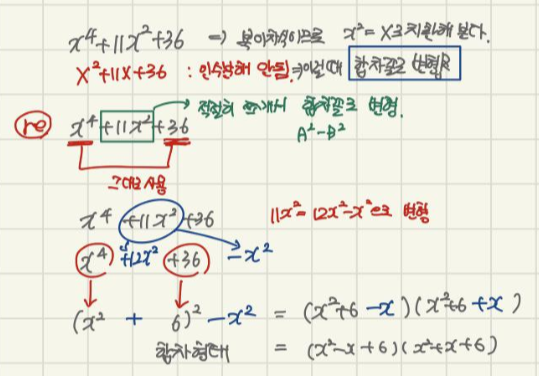 x⁴+11x²+36 ⇒ 복이차식이므로 x²= X로 치환해 본다.
X²+11X+36 : 인수분해 안됨. 이럴 때 합차꼴로 변형
적절히 쪼개서 합차꼴로 변형.
re x⁴+11x²+36
A²-B²
그대로 사용
x⁴+11x²+36 11x²=12x²-x²으로 변형
x⁴+12x²+36 -x²
(x² + 6)² -x² = (x²+6-x)(x²+6+x)
합차형태 = (x²-x+6)(x²+x+6)